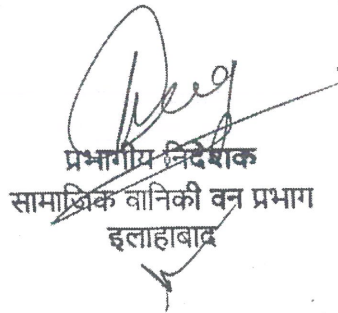 प्रभागीय निदेशक
सामाजिक वानिकी वन प्रभाग
इलाहाबाद